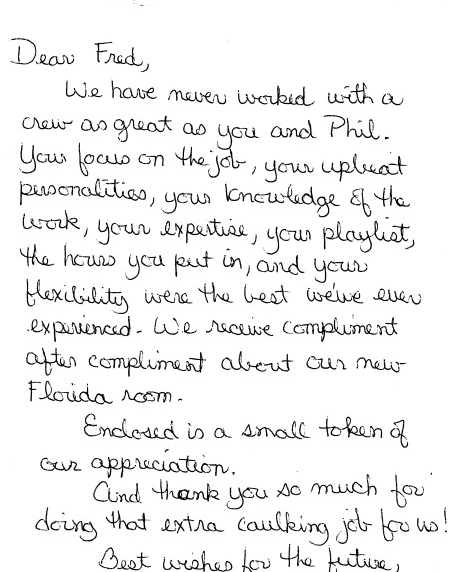 Dear Fred,
We have never worked with a
crew as great as you and Phil.
Your focus on the job, your upbeat
personalities, your knowledge of the
work, your expertise, your playlist,
the hours you put in, and your
flexibility were the best we've ever
experienced. We receive compliment
after compliment about our new
Florida room.
Enclosed is a small token of
our appreciation.
And thank you so much for
doing that extra caulking job for us!
Best wishes for the future,